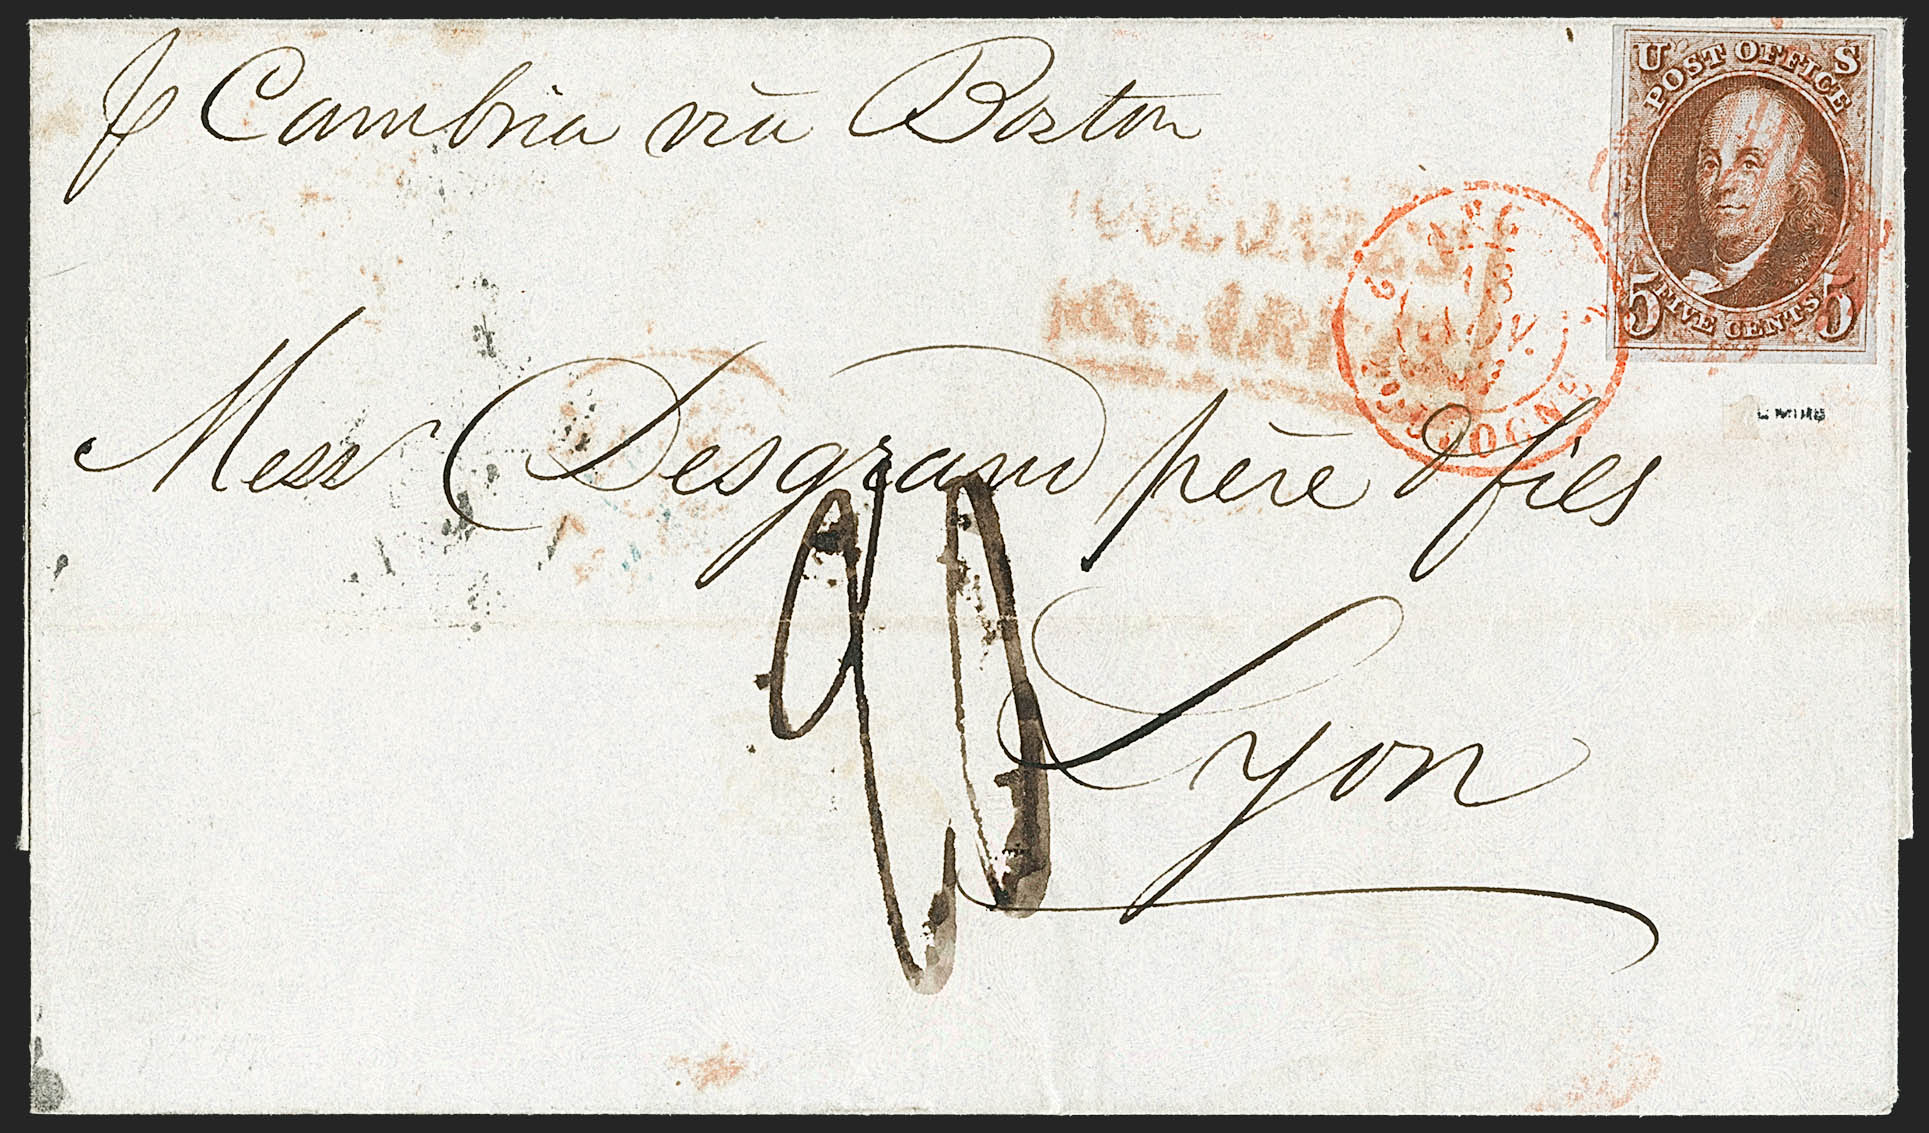 p Cambria via Boston
U S
POST OFFICE
5 FIVE CENTS 5
BOULOGNE
Mess Desgrand père & fils
Lyon